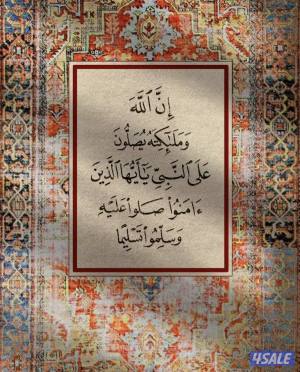 إِنَّ ٱللَّهَ
وَمَلَٰٓئِكَتَهُۥ يُصَلُّونَ
عَلَى ٱلنَّبِيِّ يَٰٓأَيُّهَا ٱلَّذِينَ
ءَامَنُوا۟ صَلُّوا۟ عَلَيْهِ
وَسَلِّمُوا۟ تَسْلِيمًا
4SALE